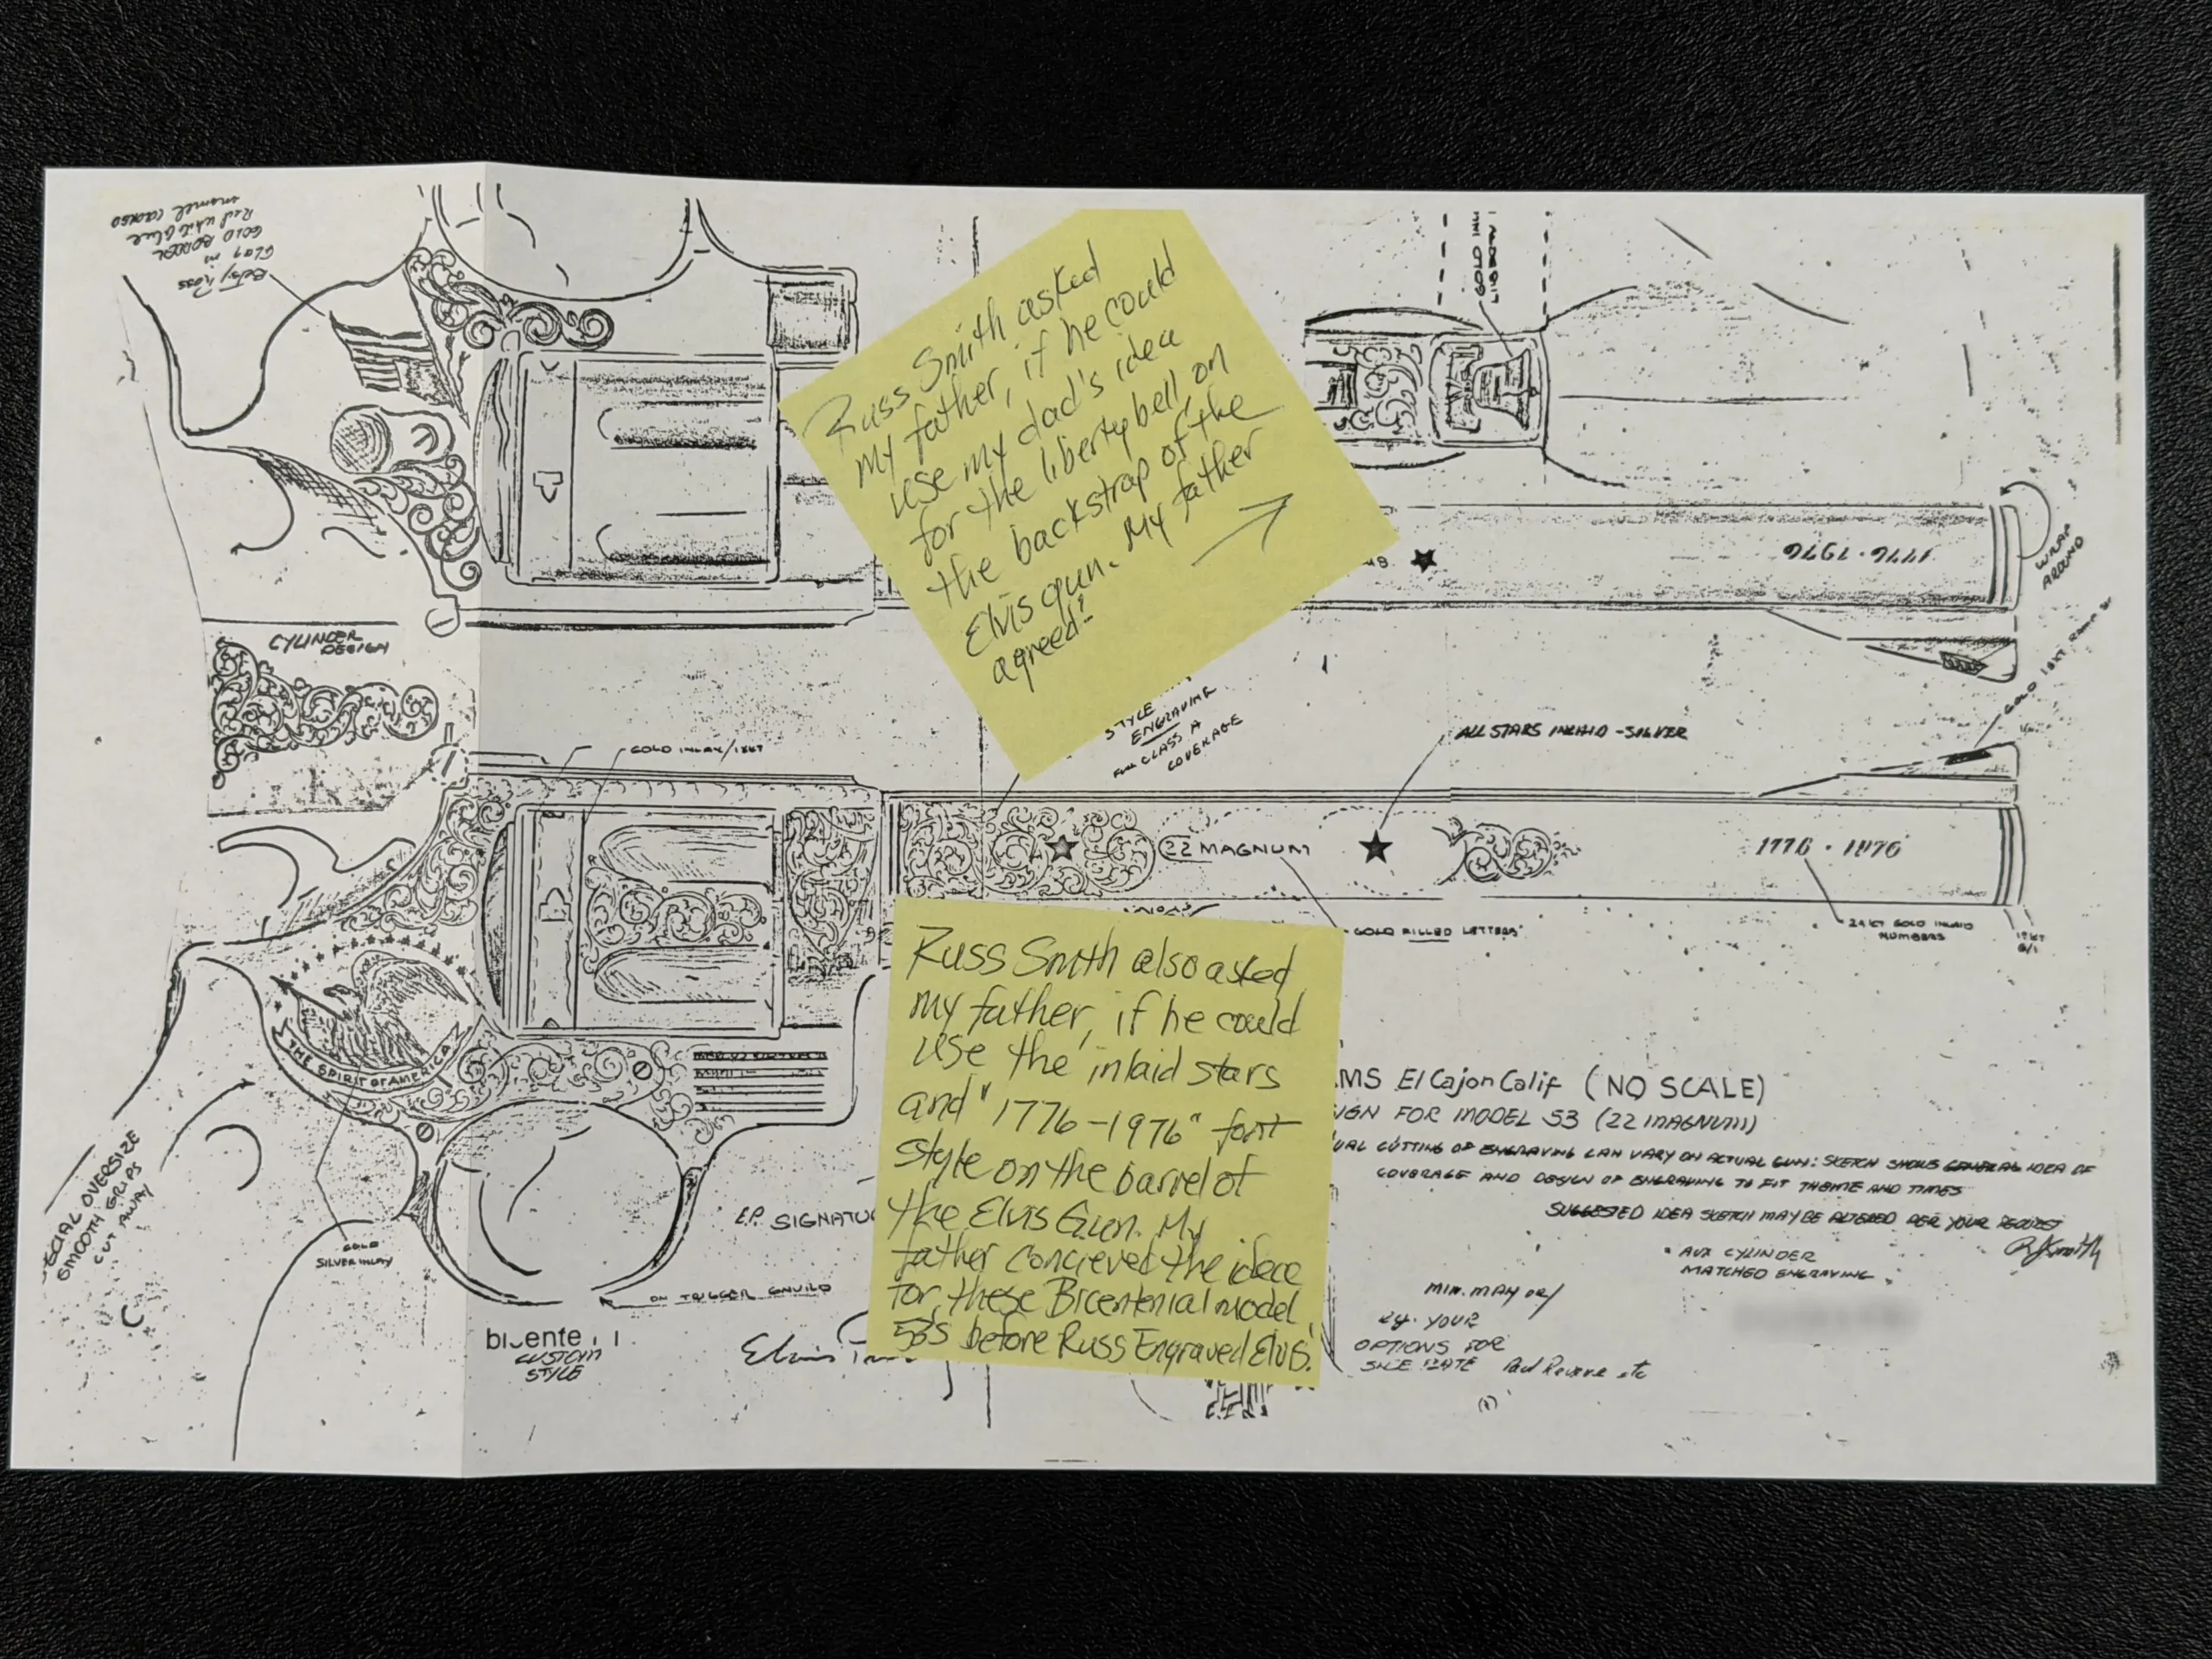 Betsy Ross
Flag in
GOLD BORDER
Red white blue
enamel
GOLD
Russ Smith asked
my father, if he could
use my dad's idea
for the liberty bell, on
the backstrap of the
Elvis gun. My father
agreed!
1776 · 1976
WRAP
AROUND
CYLINDER
DESIGN
GOLD 18KT
STYLE
ENGRAVING
FULL CLASS A
COVERAGE
ALL STARS INLAID - SILVER
GOLD INLAY/18KT
22 MAGNUM
1776 · 1976
GOLD FILLED LETTERS
24 KT GOLD INLAID
NUMBERS
THE SPIRIT OF AMERICA
Russ Smith also asked
my father, if he could
use the inlaid stars
and "1776-1976" font
style on the barrel of
the Elvis Gun. My
father concieved the idea
for, these Bicentenial model
53's before Russ Engraved Elvis'.
MS El Cajon Calif (NO SCALE)
IGN FOR MODEL 53 (22 MAGNUM)
UAL CUTTING OF ENGRAVING CAN VARY ON ACTUAL GUN: SKETCH SHOWS GENERAL IDEA OF
COVERAGE AND DESIGN OF ENGRAVING TO FIT THEME AND TIMES
SUGGESTED IDEA SKETCH MAY BE ALTERED PER YOUR REQUEST
RJSmith
• AUX CYLINDER
MATCHED ENGRAVING
ECIAL OVERSIZE
SMOOTH GRIPS
CUT AWAY
GOLD
SILVER INLAY
E.P. SIGNATU
ON TRIGGER GAUILD
CUSTOM
STYLE
Elvis
YOUR
OPTIONS FOR
Paul Revere etc